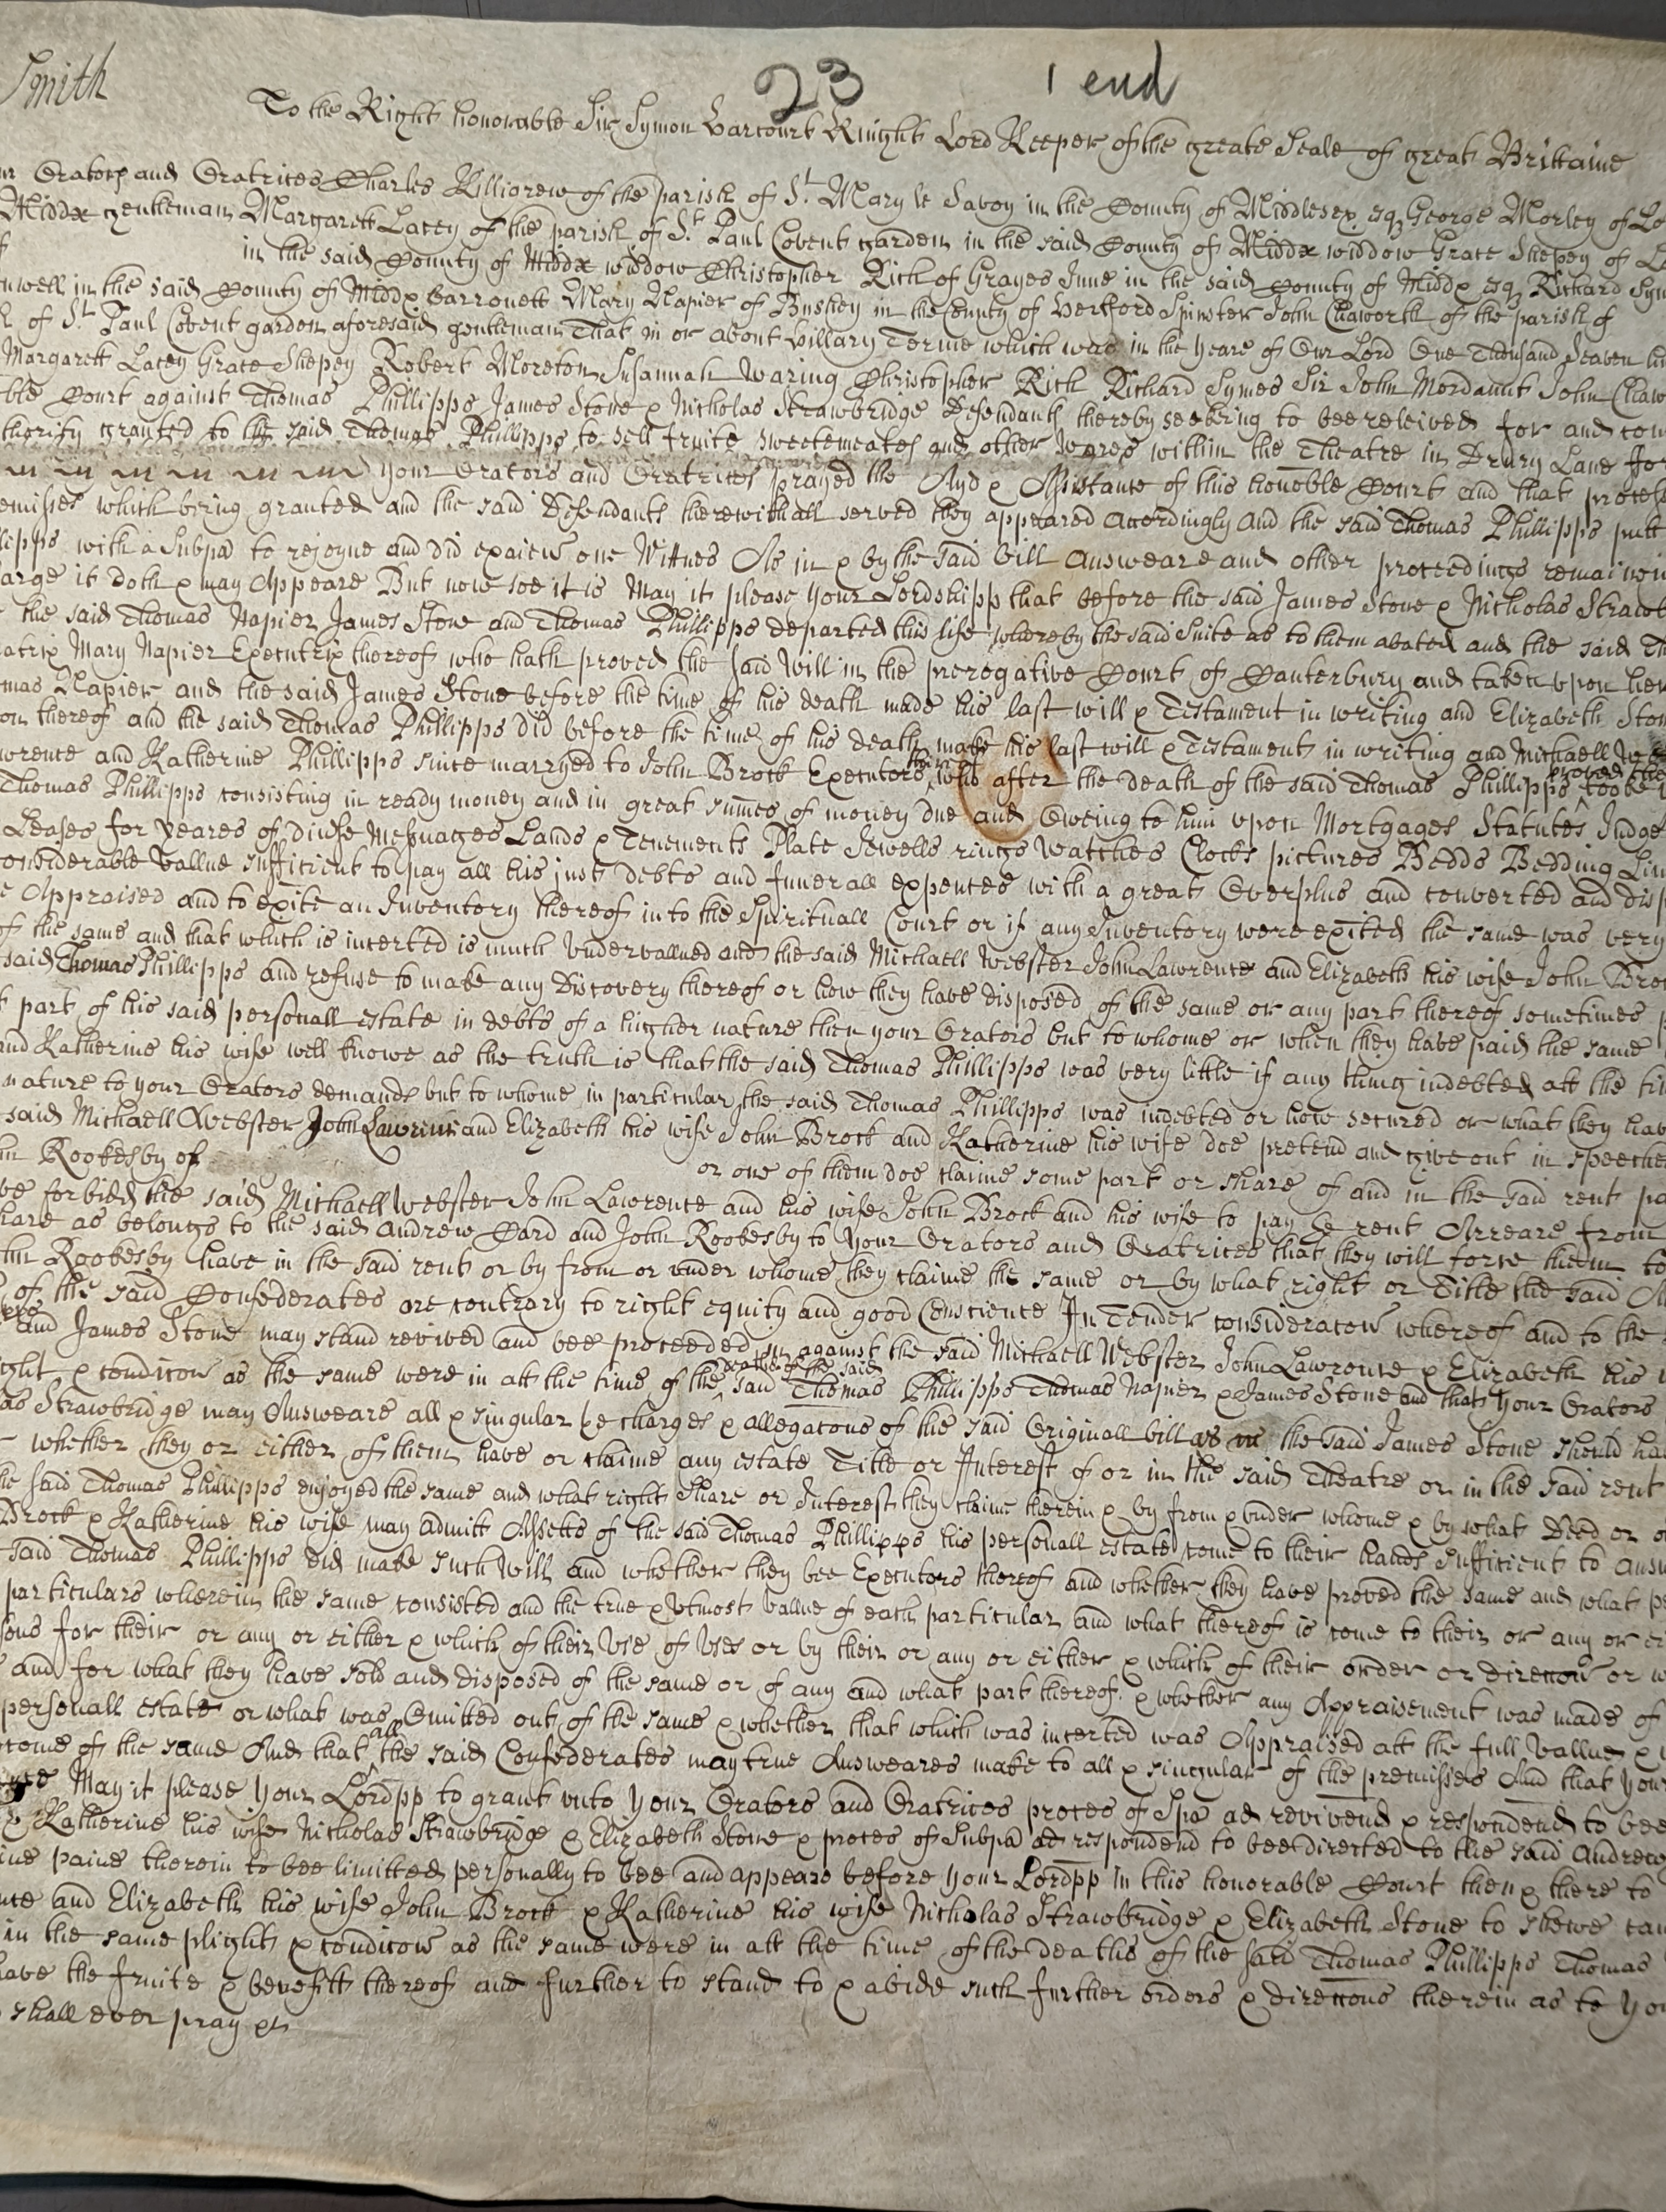 Smith
23 1 end
To the Right honorable Sir Symon Harcourt Knight Lord Keeper of the greate Seale of great Brittaine
Orators and Oratrices Charles Killigrew of the parish of St. Mary le Savoy in the County of Middlesex Esq George Morley of Lo
Middx gentleman Margarett Lacey of the parish of St. Paul Covent garden in the said County of Middx widdow Grace Shepey of
in the said County of Middx widdow Christopher Rich of Grayes Inne in the said County of Middx Esq Richard Sym
nwell in the said County of Middx Barronett Mary Napier of Bushey in the County of Hertford Spinster John Chaworth of the parish of
of St. Paul Covent garden aforesaid gentleman That in or about Hillary Terme which was in the yeare of Our Lord One Thousand Seaven hu
Margarett Lacey Grace Shepey Robert Moreton Susannah Waring Christopher Rich Richard Symes Sir John Mordaunt John Chaw
ble Court against Thomas Phillipps James Stone & Nicholas Strawbridge Defendants thereby seeking to bee releived for and con
thority granted to the said Thomas Phillipps to sell fruite sweetemeates and other wares within the Theatre in Drury Lane for
your Orators and Oratrices prayed the Ayd & Assistance of this honoble Court and that proces
emisses which being granted and the said Defendants therewithall served they appeared accordingly And the said Thomas Phillipps putt
lipps with a Subpa to rejoyne and did examine one Wittnes As in & by the said bill Answeare and other proceedings remaining
arge it doth & may Appeare But now soe it is May it please your Lordshipp that before the said James Stone & Nicholas Strawb
the said Thomas Napier James Stone and Thomas Phillipps departed this life whereby the said Suite as to them abated and the said Th
atrix Mary Napier Executrix thereof who hath proved the said Will in the prerogative Court of Canterbury and taken upon her
mas Napier and the said James Stone before the time of his death made his last will & Testament in writing and Elizabeth Ston
on thereof and the said Thomas Phillipps did before the time of his death make his last will & Testament in writing and Michaell We
wrence and Katherine Phillipps since marryed to John Brock Executors thereof who after the death of the said Thomas Phillipps proved the tooke
Thomas Phillipps consisting in ready money and in great summes of money due and Oweing to him upon Mortgages Statutes Judge
Leases for yeares of diverse Messuages Lands & Tenements Plate Jewells rings Watches Clocks pictures Bedds Bedding Lin
considerable vallue sufficient to pay all his just debts and funerall expences with a great Overplus and converted and disp
Appraised and to exite an Inventory thereof into the Spirituall Court or if any Inventory were exited the same was very
of the same and that which is incerted is much undervallued and the said Michaell Webster John Lawrence and Elizabeth his wife John Bro
said Thomas Phillipps and refuse to make any Discovery thereof or how they have disposed of the same or any part thereof sometimes
part of his said personall estate in debts of a higher nature then your Orators but to whome or when they have paid the same
and Katherine his wife well knowe as the truth is that the said Thomas Phillipps was very little if any thing indebted att the ti
nature to your Orators demands but to whome in particular the said Thomas Phillipps was indebted or how secured or what they hav
said Michaell Webster John Lawrence and Elizabeth his wife John Brock and Katherine his wife doe pretend and give out in speeches
Rookesby of or one of them doe claime some part or share of and in the said rent
ve forbid the said Michaell Webster John Lawrence and his wife John Brock and his wife to pay the rent Arreare from
hare as belongs to the said Andrew Card and John Rookesby to your Orators and Oratrices that they will force them to
Rookesby have in the said rent or by from or under whome they claime the same or by what right or Title the said
of the said Confederates are contrary to right equity and good Conscience In Tender consideracon whereof and to the
and James Stone may stand revived and bee proceeded in against the said Michaell Webster John Lawrence & Elizabeth his
ight & condicon as the same were in att the time of the deaths of the said said Thomas Phillipps Thomas Napier & James Stone and that your Orators
as Strawbridge may Answeare all & singular the charges & allegacons of the said Originall bill as the said James Stone should ha
whether they or either of them have or claime any estate Title or Interest of or in the said Theatre or in the said rent
he said Thomas Phillipps enjoyed the same and what right Share or Interest they claime therein & by from & under whome & by what Deed or
Brock & Katherine his wife may admitt Assetts of the said Thomas Phillipps his personall estate come to their hands sufficient to answ
said Thomas Phillipps did make such Will and whether they bee Executors thereof and whether they have proved the same and what pe
particulars wherein the same consisted and the true & utmost vallue of each particular and what thereof is come to their or any or ei
sons for their or any or either & which of their Use or Uses or by their or any or either & which of their order or direccon or
and for what they have sold and disposed of the same or of any and what part thereof & whether any Appraisement was made of
personall estate or what was Omitted out of the same & whether that which was incerted was Appraised att the full vallue &
come of the same And that all the said Confederates may true Answeares make to all & singular of the premisses And that your
May it please your Lordpp to grant unto your Orators and Oratrices proces of Spa ad revivend & respondend to bee
& Katherine his wife Nicholas Strawbridge & Elizabeth Stone & proces of Subpa ad respondend to bee directed to the said Andrew
ine paine therein to bee limitted personally to bee and appeare before your Lordpp in this honorable Court then & there to
nce and Elizabeth his wife John Brock & Katherine his wife Nicholas Strawbridge & Elizabeth Stone to shewe cau
in the same plight & condicon as the same were in att the time of the deaths of the said Thomas Phillipps Thomas
have the fruite & benefitt thereof and further to stand to & abide such further orders & direccons therein as to yo
shall ever pray &c